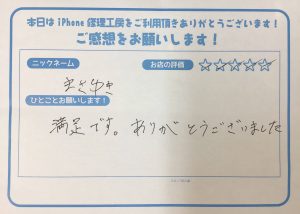 本日は iPhone 修理工房をご利用頂きありがとうございます!
ご感想をお願いします!
ニックネーム
お店の評価 ☆☆☆☆☆
まさゆき
ひとことお願いします!
満足です。ありがとうございました